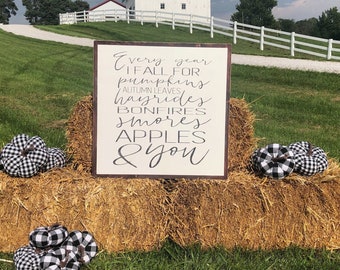 Every year
I FALL FOR
pumpkins
AUTUMN LEAVES
hayrides
BONFIRES
smores
APPLES
& you